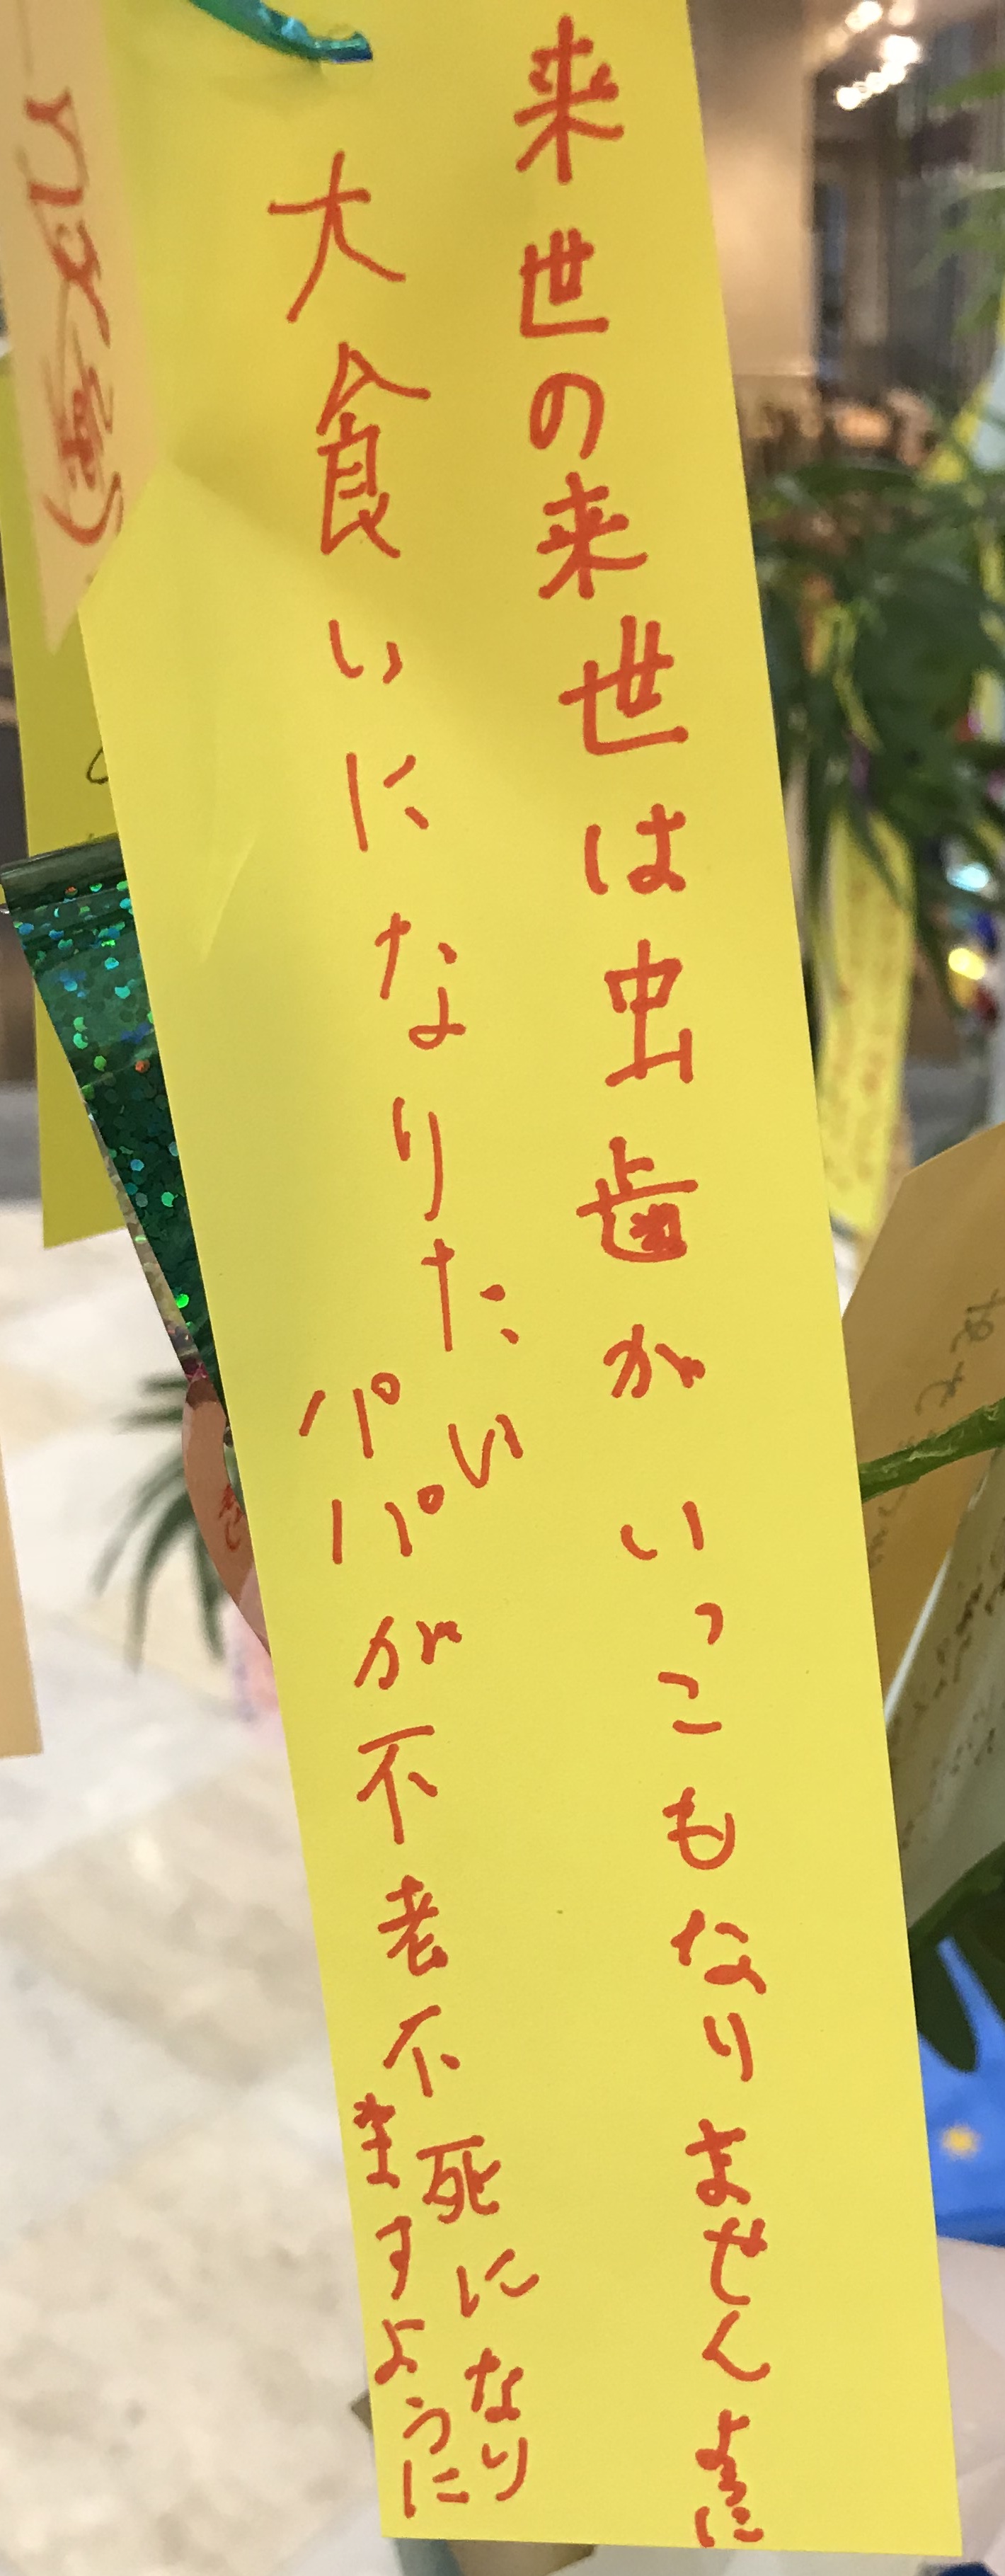 来世の来世は虫歯がいっこもなりませんように
大食いになりたい
パパが不老不死になり
ますように